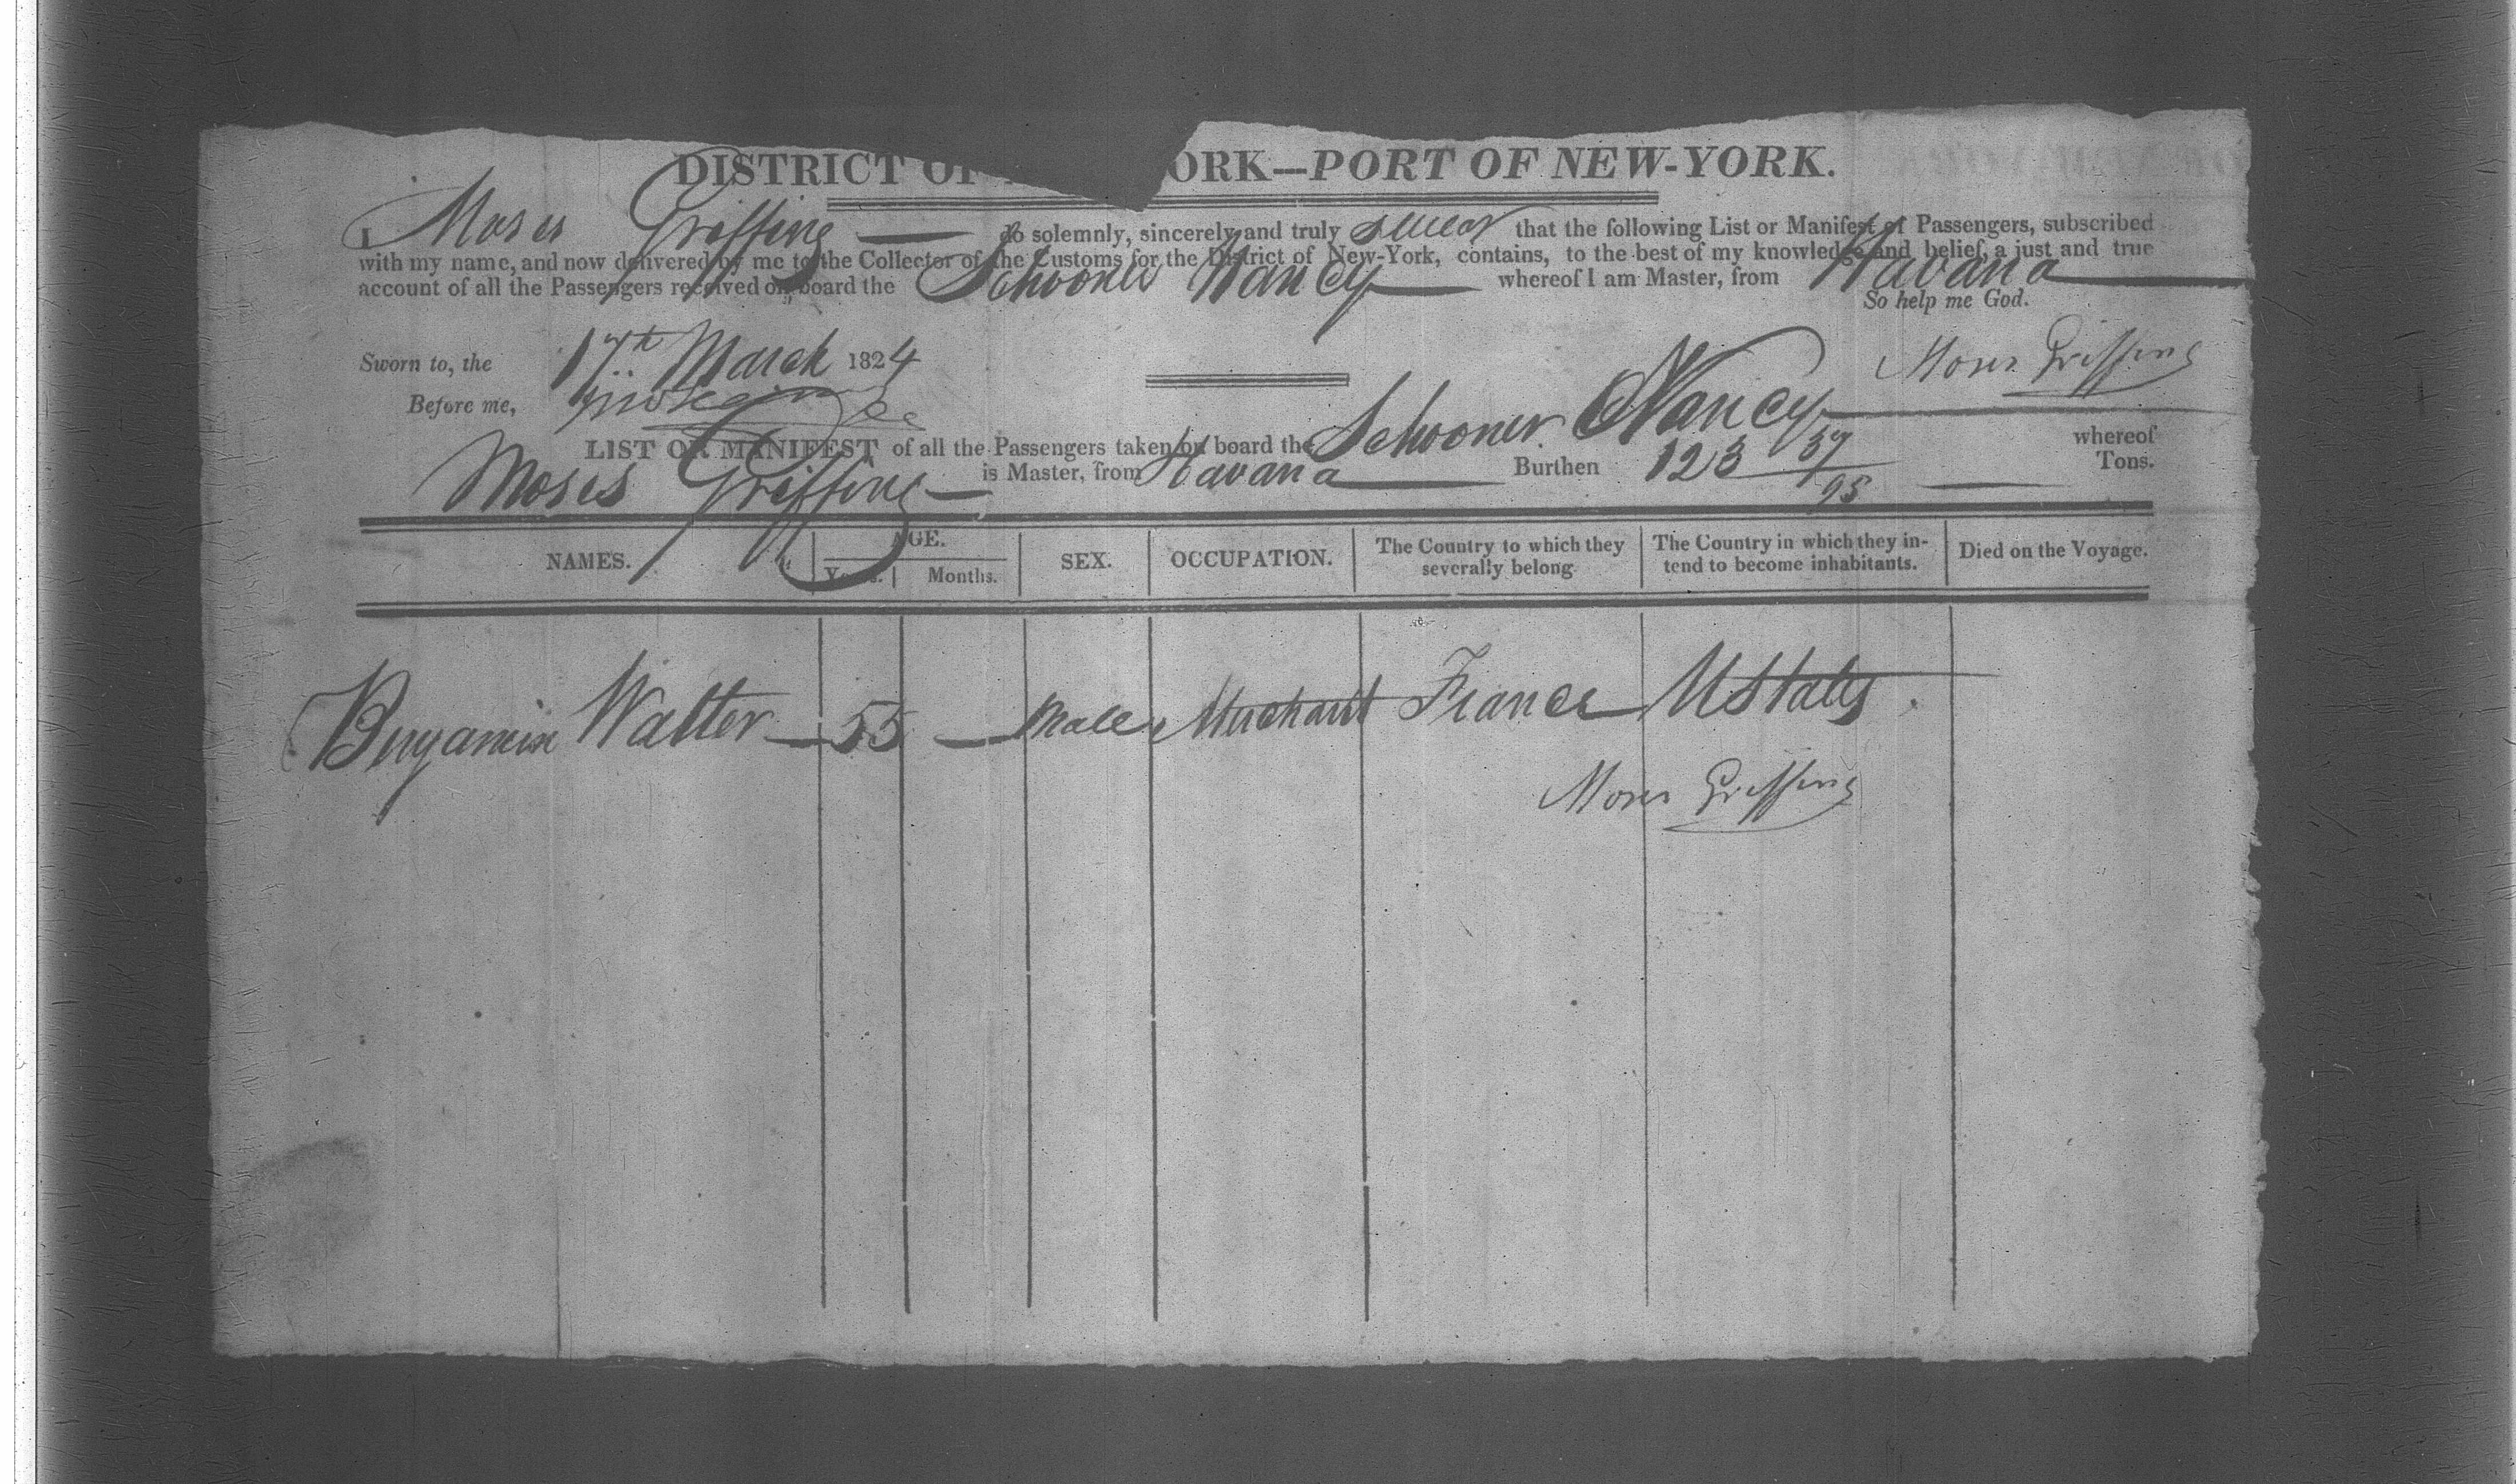 DISTRICT OF ORK—PORT OF NEW-YORK.
I Moses Griffing do solemnly, sincerely and truly swear that the following List or Manifest of Passengers, subscribed
with my name, and now delivered by me to the Collector of the Customs for the District of New-York, contains, to the best of my knowledge and belief, a just and true
account of all the Passengers received on board the Schooner Nancy whereof I am Master, from Havana
So help me God.
Sworn to, the 17th March 1824
Moses Griffing
Before me,
LIST OR MANIFEST of all the Passengers taken on board the Schooner Nancy whereof
Moses Griffing is Master, from Havana Burthen 123 37/95 Tons.
NAMES. AGE. SEX. OCCUPATION. The Country to which they severally belong The Country in which they in-tend to become inhabitants. Died on the Voyage.
Years. Months.
Benjamin Walter 55 Male Merchant France UStates
Moses Griffing